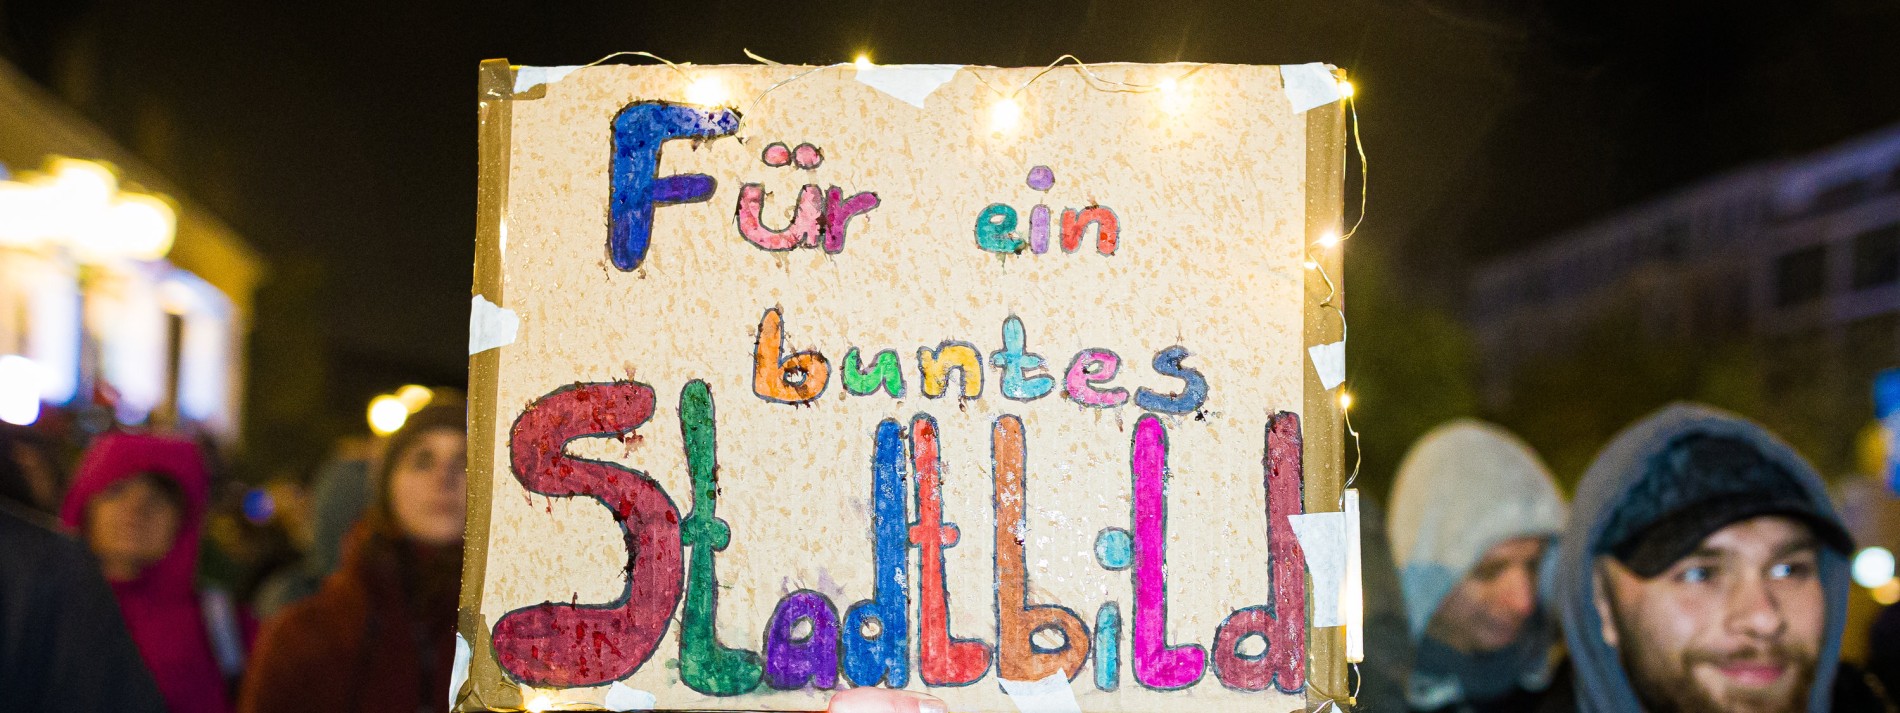 Für ein
buntes
Stadtbild